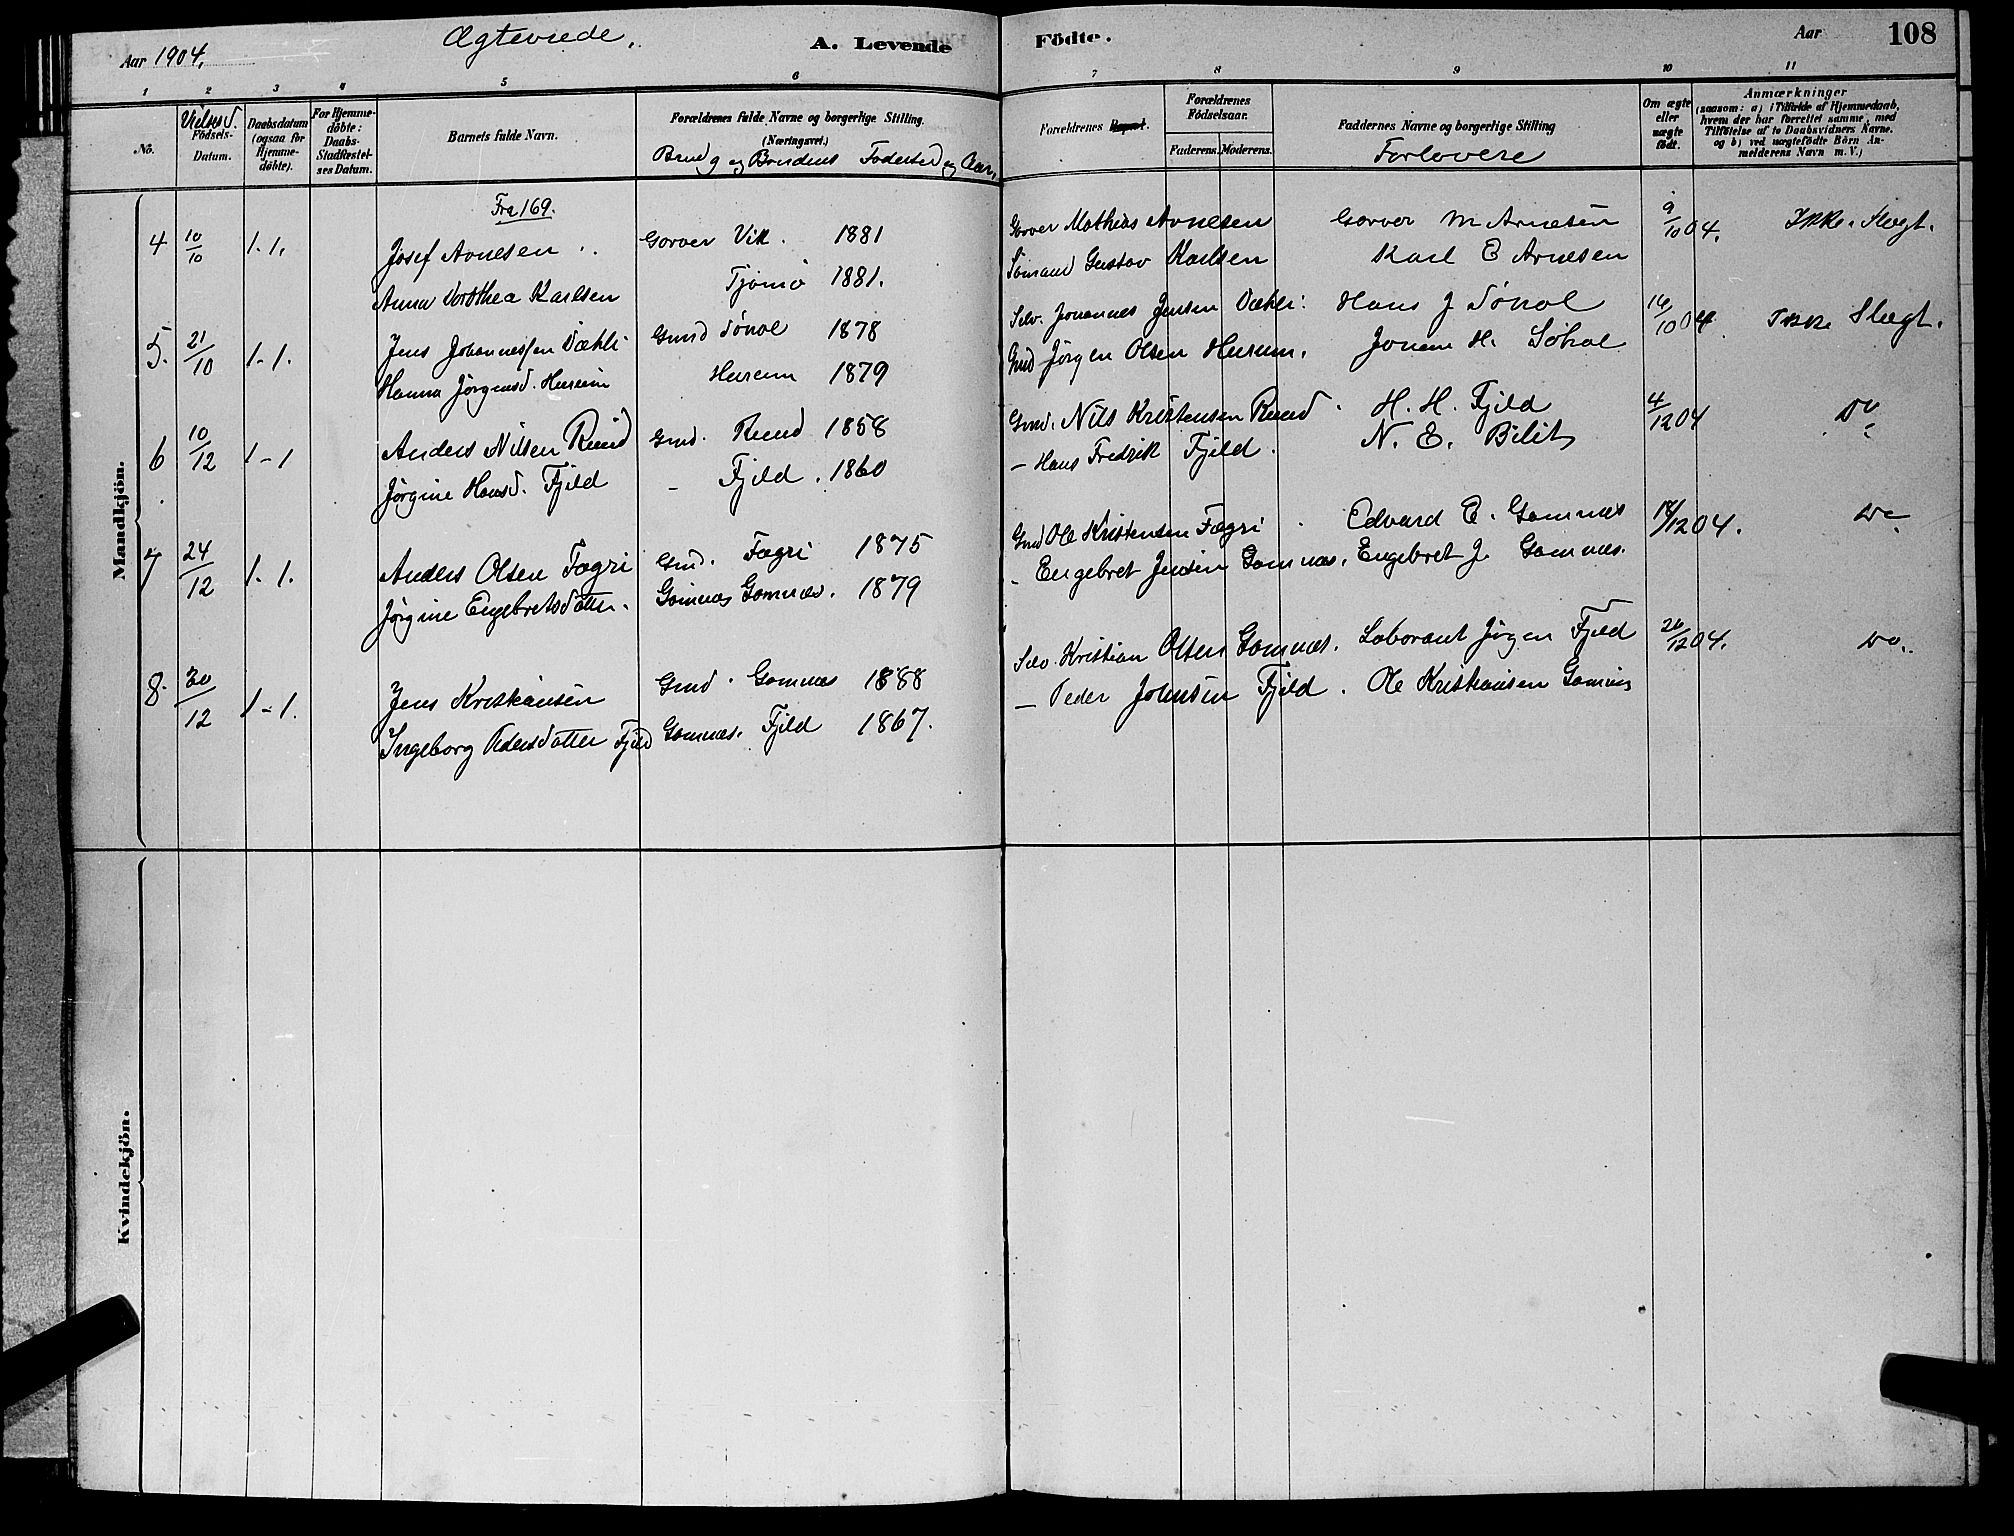 Aar 1904.
Ægteviede.
A. Levende Födte.
Aar
108
1 2 3 4 5 6 7 8 9 10 11
No.
Vielsesd.
Födsels-
Datum.
Daabsdatum
(ogsaa for
Hjemme-
döbte).
For Hjemme-
döbte:
Daabs-
Stadfæstel-
ses Datum.
Barnets fulde Navn.
Forældrenes fulde Navne og borgerlige Stilling.
(Næringsvei.)
Brudg og Brudens Födested og Aar.
Forældrenes Bopæl.
Forældrenes
Födselsaar.
Faderens. Moderens.
Faddernes Navne og borgerlige Stilling
Forlovere
Om ægte
eller
uægte
født.
Anmærkninger
(saasom: a) i Tilfælde af Hjemmedaab,
hvem der har forrettet samme, med
Tilföielse af to Daabsvidners Navne.
og b) ved uægtefödte Börn An-
melderens Navn m. V.)
Mandkjön.
Fra 169.
4 10/10 1-1. Josef Arnesen Garver Vik. 1881 Garver Mathias Arnesen Garver M Arnesen 9/10 04. Ikke Slægt.
Anna Dorothea Karlsen Tjömö 1881. Sömand Gustav Karlsen Karl E Arnesen
5. 21/10 1-1. Jens Johannessen Dæhli Gmd Sönol 1878 Selv. Johannes Jensen Dæhli Hans J Sönol 14/10 04. Ikke Slægt.
Hanna Jörgensd. Hurum Hurum 1879 Gmd Jörgen Olsen Hurum. H. Sönol
6 10/12 1-1 Anders Nilsen Rund Gmd. Rund 1858 Gmd. Nils Kristensen Rund H. H. Fjeld 4/12 04 Do
Jörgine Hansd. Fjeld - Fjeld. 1860 - Hans Fredrik Fjeld. N. E. Bilit
7 24/12 1-1. Anders Olsen Fægri Gmd. Fægri 1875 Gmd Ole Kristensen Fægri Edvard E. Gomnæs 18/12 04. Do
Jörgine Engebretsdatter. Gomnæs Gomnæs. 1879 - Engebret Jensen Gomnæs. Engebret J. Gomnæs.
8. 30/12 1-1. Jens Kristiansen Gmd. Gomnæs 1868 Selv. Kristian Olsen Gomnæs. Laborant Jörgen Fjeld 26/12 04. Do.
Ingeborg Pedersdatter Fjeld Gomnæs. Fjeld 1867. - Peder Johnsen Fjeld. Ole Kristiansen Gomnæs
Kvindekjön.